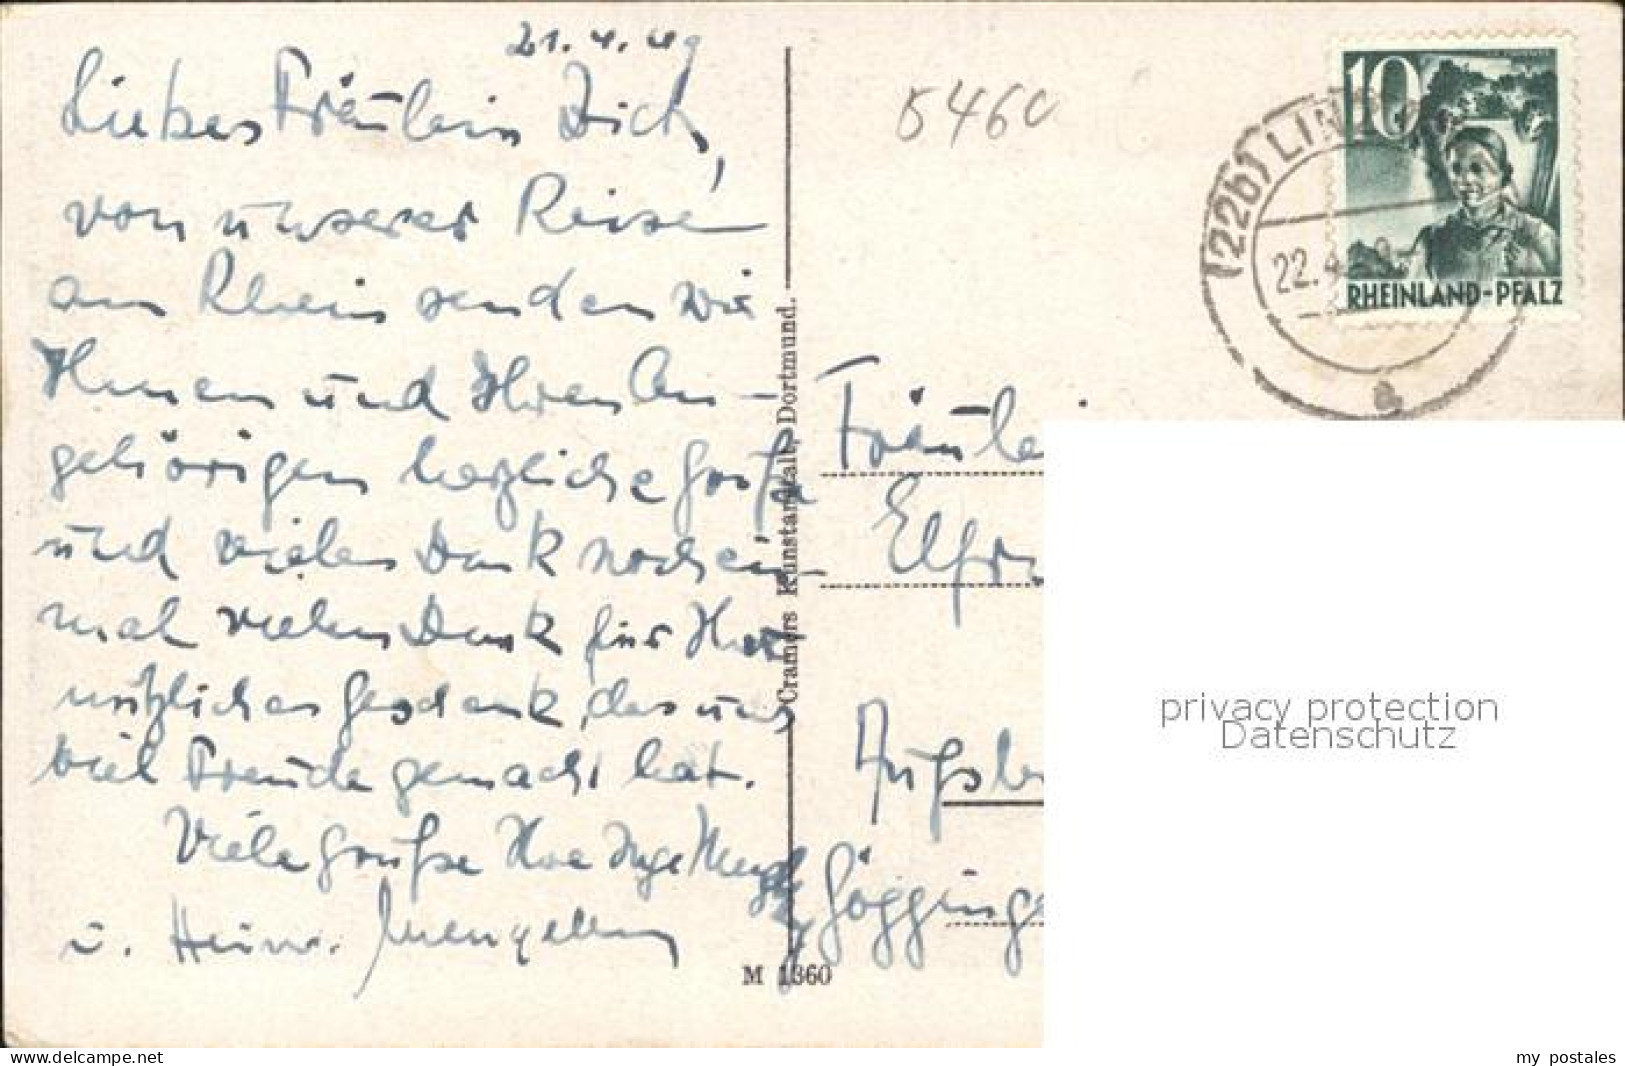 21.4.49
Liebes Fräulein Dick,
von unserer Reise
am Rhein senden wir
Ihnen und Ihren An-
gehörigen herzliche Grüße
und vielen Dank noch ein-
mal vielen Dank für Ihr
nützliches Geschenk, das uns
viel Freude gemacht hat.
Viele Grüße Ihre Inge
u. Heinr.
Cramers Kunstanstalt, Dortmund.
M 1360
5460
(22b) LINZ
22.4.
a
10
RHEINLAND-PFALZ
Fräulei
Elfri
Augsbu
Gögginge
privacy protection
Datenschutz
www.delcampe.net
my postales